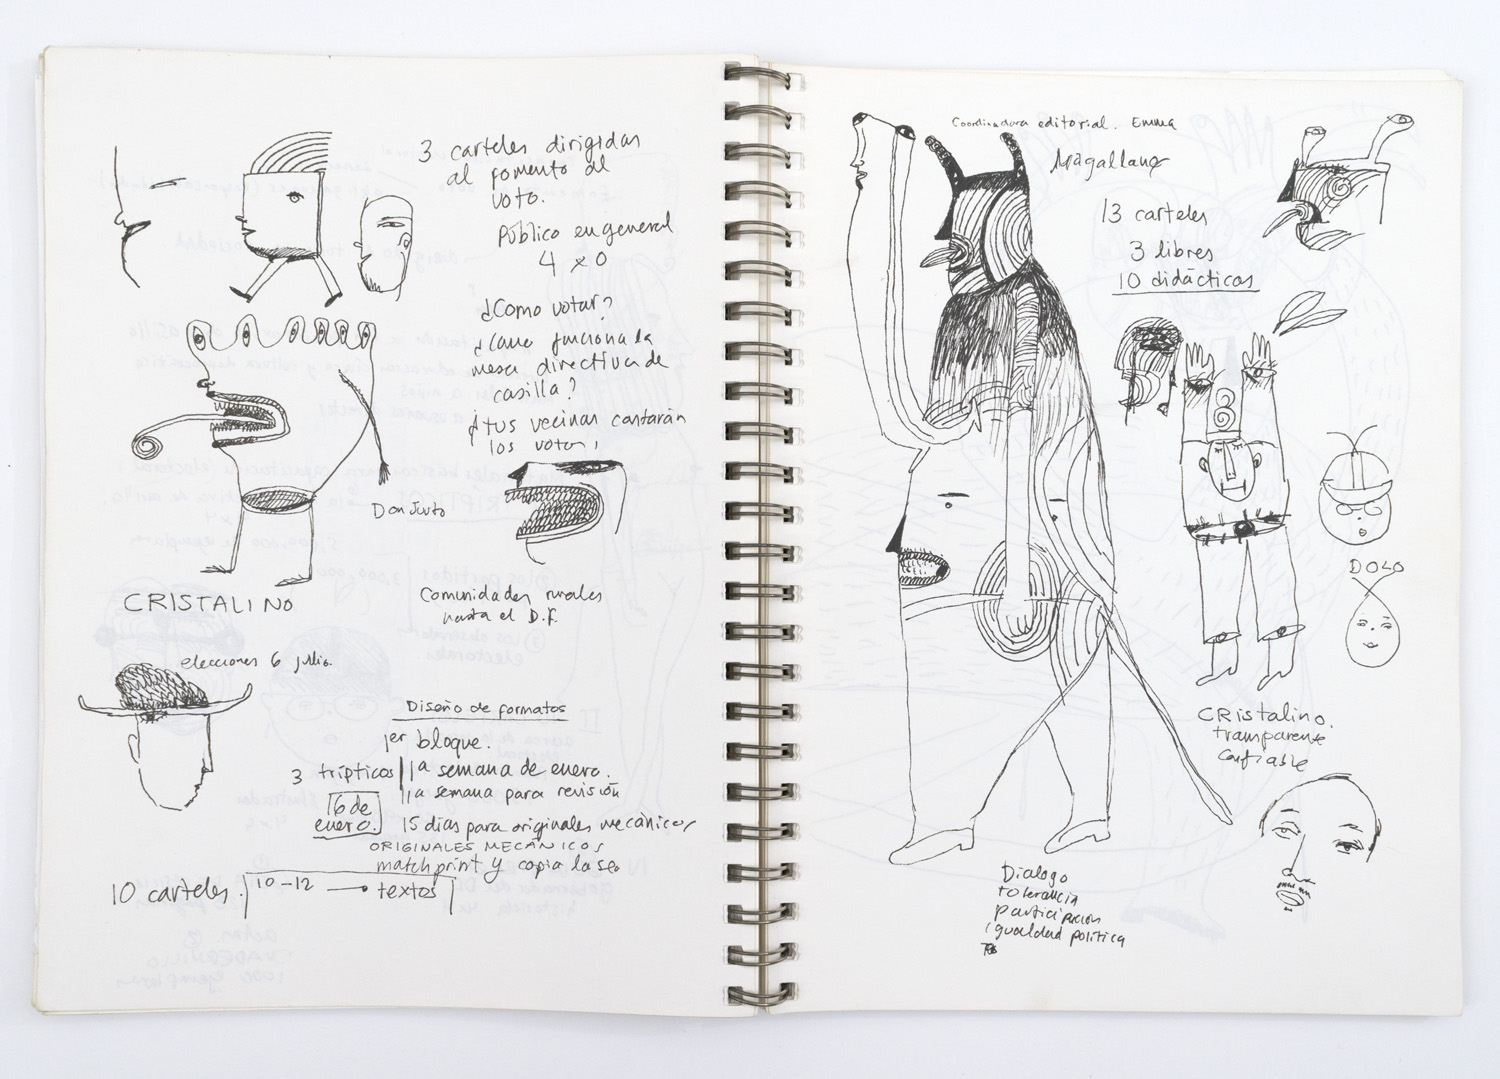 3 carteles dirigidas
al fomento al
voto.
Público en general
4 x 0
¿Como votar?
¿Como funciona la
mesa directiva de
casilla?
¡tus vecinos contarán
los votos!
Don Justo
CRISTALINO
Comunidades rurales
hasta el D.F.
elecciones 6 julio.
Diseño de formatos
1er bloque.
3 trípticos | 1a semana de enero.
1a semana para revisión
16 de
enero.
15 días para originales mecánicos
ORIGINALES MECÁNICOS
matchprint y copia laser
10 carteles. 10-12 → textos
Coordinadora editorial. Emma
Magallanes
13 carteles
3 libres
10 didácticos
DOLO
CRistalino.
transparente
confiable
Dialogo
tolerancia
participación
igualdad política